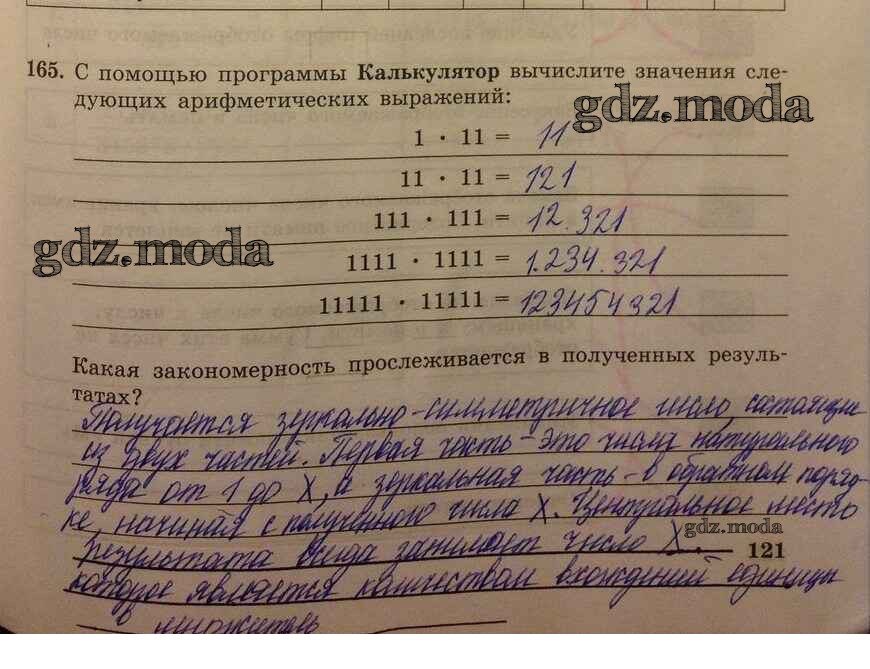 165. С помощью программы Калькулятор вычислите значения сле-
дующих арифметических выражений:
gdz.moda
1 · 11 = 11
11 · 11 = 121
111 · 111 = 12.321
gdz.moda
1111 · 1111 = 1.234.321
11111 · 11111 = 123454321
Какая закономерность прослеживается в полученных резуль-
татах?
Получается зеркально-симметричное число, состоящие
из двух частей. Первая часть - это числа натурального
ряда от 1 до X, а зеркальная часть - в обратном поряд-
ке, начиная с полученного числа X. Центральное место
gdz.moda
результата всегда занимает число X,
121
которое является количеством вхождений единицы
в множитель